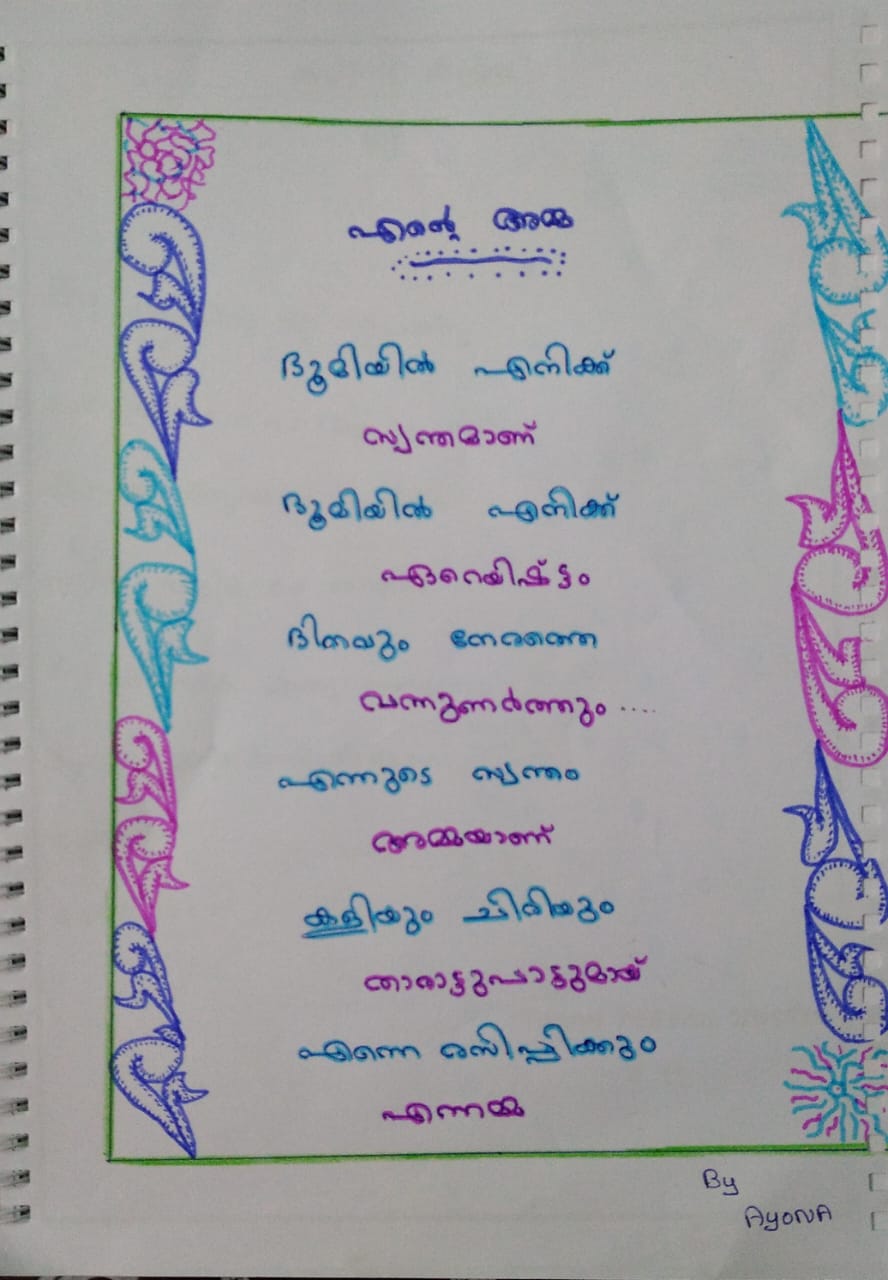 എന്റെ അമ്മ
ഭൂമിയിൽ എനിക്ക്
സ്വന്തമാണ്
ഭൂമിയിൽ എനിക്ക്
ഏറെയിഷ്ട്ടം
ദിനവും നേരത്തെ
വന്നുണർത്തും ....
എന്നുടെ സ്വന്തം
അമ്മയാണ്
കളിയും ചിരിയും
താരാട്ടുപാട്ടുമായ്
എന്നെ രസിപ്പിക്കും
എന്നമ്മ
By
AYONA